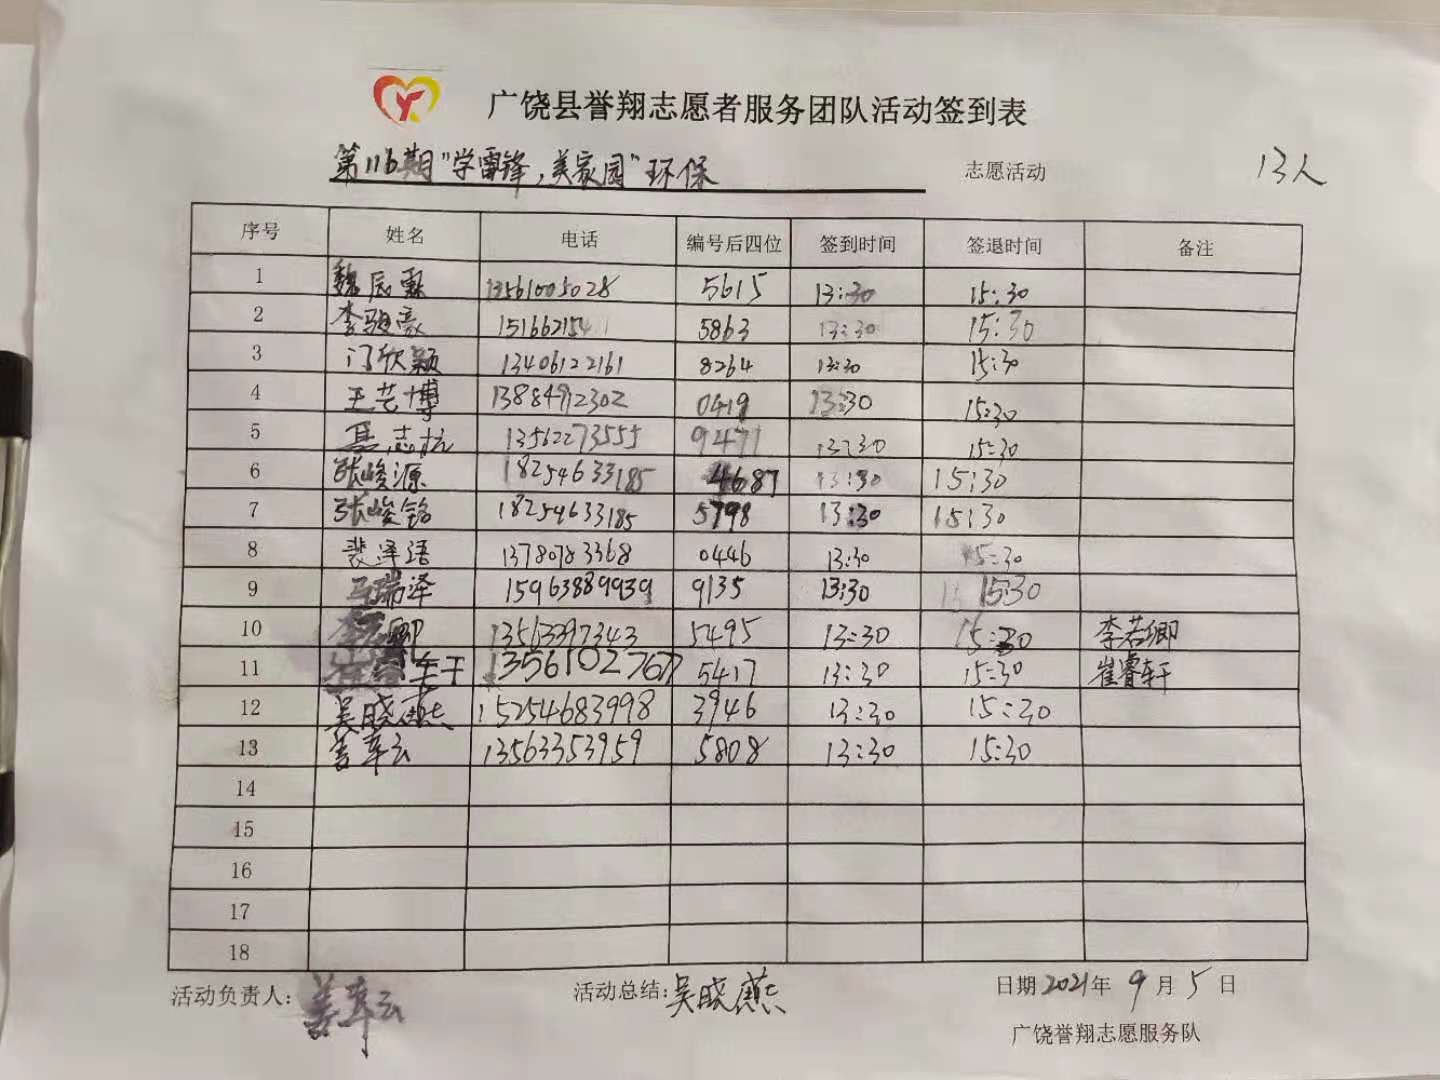 广饶县誉翔志愿者服务团队活动签到表
第116期"学雷锋,美家园"环保 志愿活动 13人
序号 姓名 电话 编号后四位 签到时间 签退时间 备注
1 魏辰霖 13561005028 5615 13:30 15:30
2 李骐豪 5863 13:30 15:30
3 门欣颖 13406122161 8264 13:30 15:30
4 王艺博 13884912302 0419 13:30 15:30
5 聂志杭 13562273555 9471 13:30 15:30
6 张峻源 18254633185 4687 13:30 15:30
7 张峻铭 18254633185 5798 13:30 15:30
8 裴泽语 13780783368 0446 13:30 15:30
9 马瑞泽 15963889939 9135 13:30 15:30
10 李若卿 13563397343 5495 13:30 15:30 李若卿
11 轩 13561027677 5417 13:30 15:30 崔睿轩
12 吴晓燕 15254683998 3946 13:30 15:30
13 姜苹云 13563353959 5808 13:30 15:30
14
15
16
17
18
活动负责人: 姜苹云 活动总结: 吴晓燕 日期 2021年 9 月 5 日
广饶誉翔志愿服务队